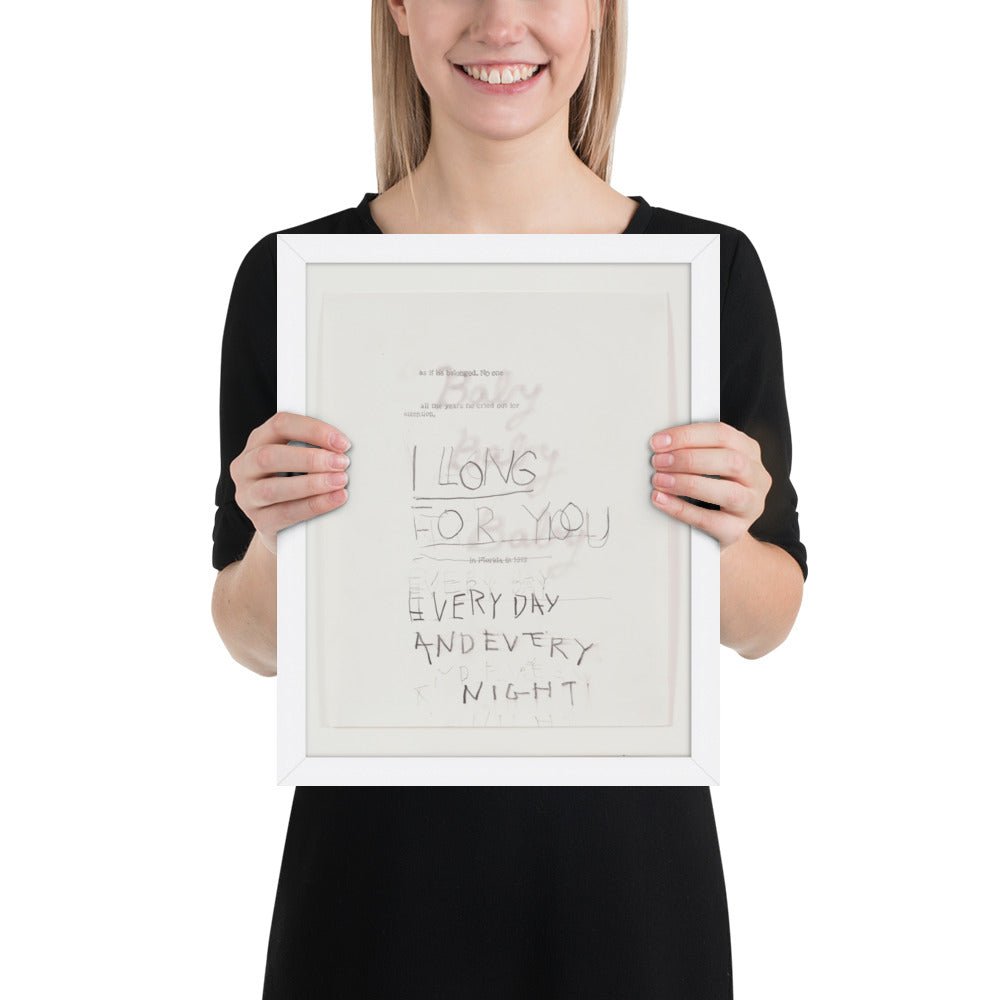 as if he belonged. No one
Baby
all the years he cried out for
attention.
Baby
I LONG
FOR YOU
Baby
in Florida in 1972
EVERY DAY
EVERY DAY
AND EVERY
NIGHT